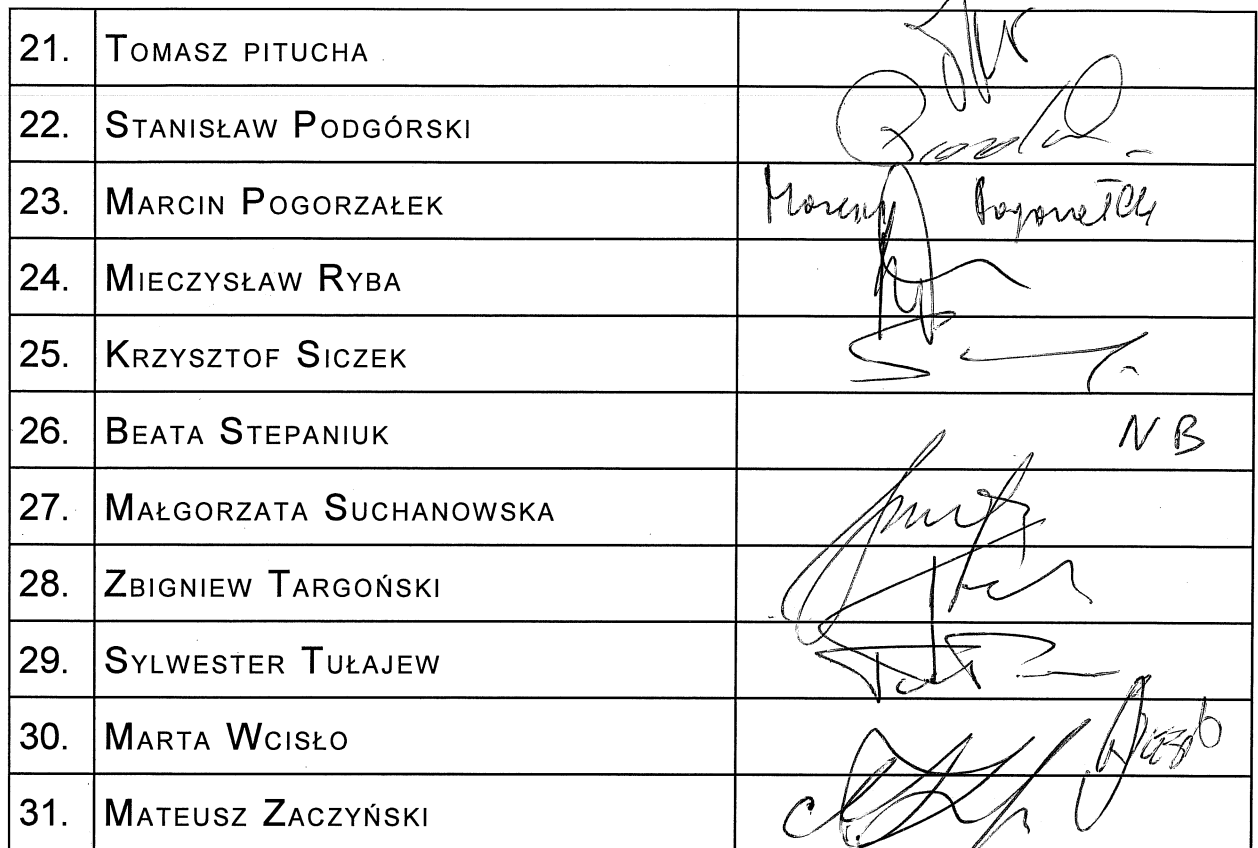 21. TOMASZ PITUCHA
22. STANISŁAW PODGÓRSKI
23. MARCIN POGORZAŁEK
24. MIECZYSŁAW RYBA
25. KRZYSZTOF SICZEK
26. BEATA STEPANIUK N B
27. MAŁGORZATA SUCHANOWSKA
28. ZBIGNIEW TARGOŃSKI
29. SYLWESTER TUŁAJEW
30. MARTA WCISŁO
31. MATEUSZ ZACZYŃSKI